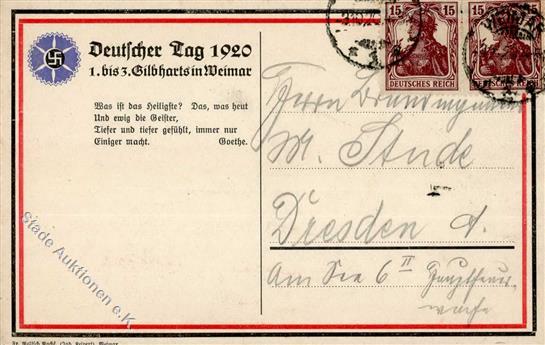 Deutscher Tag 1920
1. bis 3. Gilbharts in Weimar
Was ist das Heiligste? Das, was heut
Und ewig die Geister,
Tiefer und tiefer gefühlt, immer nur
Einiger macht. Goethe.
15 15
15
DEUTSCHES REICH
DEUTSCHES REICH
WEIMAR
Herrn
M. Stude
Dresden A.
Am See 6 II Hauptfeuer
wache
Stade Auktionen e.K
Weimar